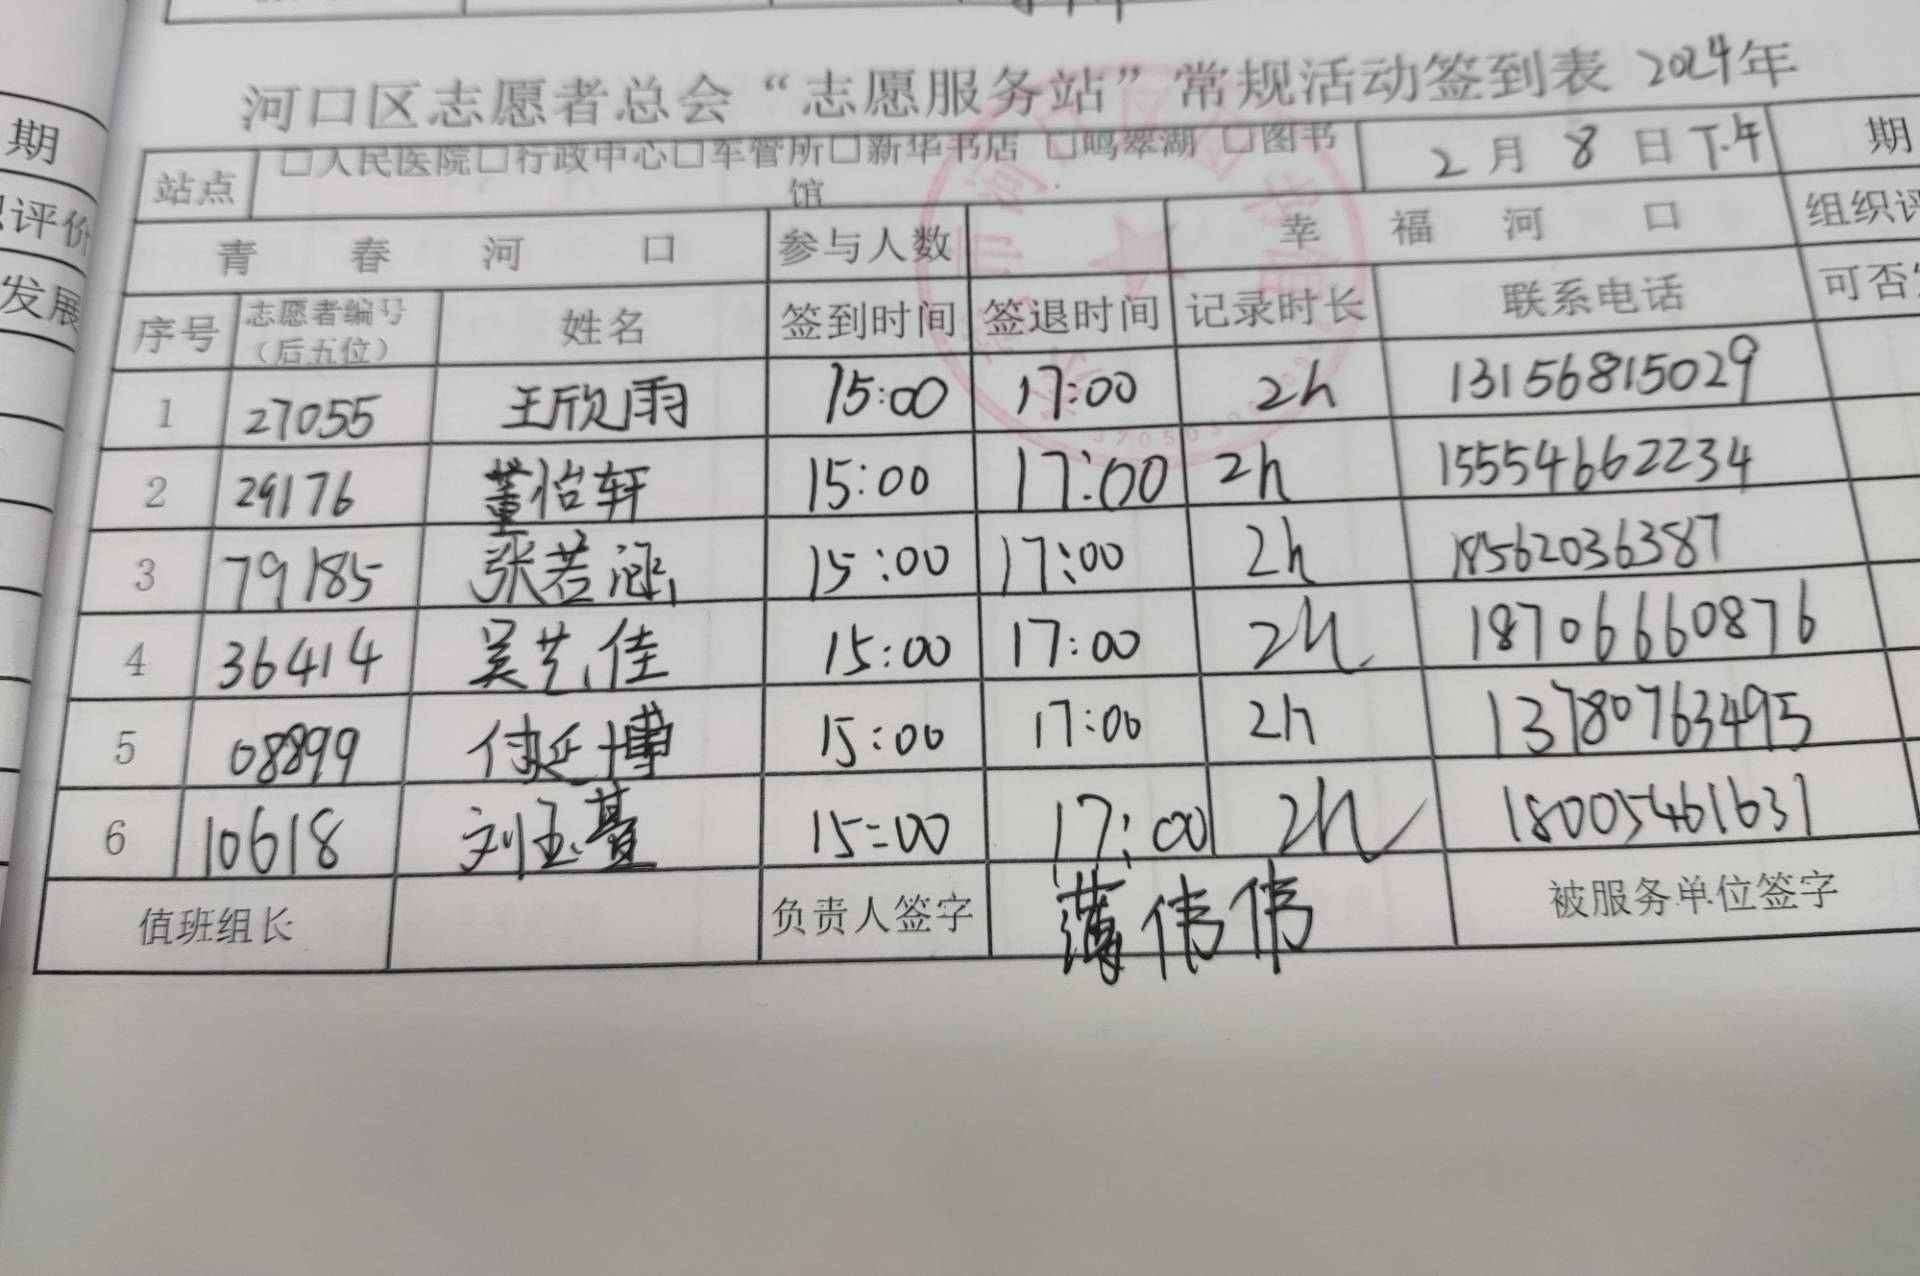 河口区志愿者总会“志愿服务站”常规活动签到表 2024年
期
站点 □人民医院□行政中心□车管所□新华书店 □鸣翠湖 □图书馆 2月8日下午 期
评价
青春河口 参与人数 幸福河口 组织评
发展
序号 志愿者编号（后五位） 姓名 签到时间 签退时间 记录时长 联系电话 可否
1 27055 王欣雨 15:00 17:00 2h 13156815029
2 29176 董怡轩 15:00 17:00 2h 15554662234
3 79185 张若涵 15:00 17:00 2h 18562036387
4 36414 吴艺佳 15:00 17:00 2h 18706660876
5 08899 付延博 15:00 17:00 2h 13780763495
6 10618 刘玉 15:00 17:00 2h 18005461631
值班组长 负责人签字 薄伟伟 被服务单位签字